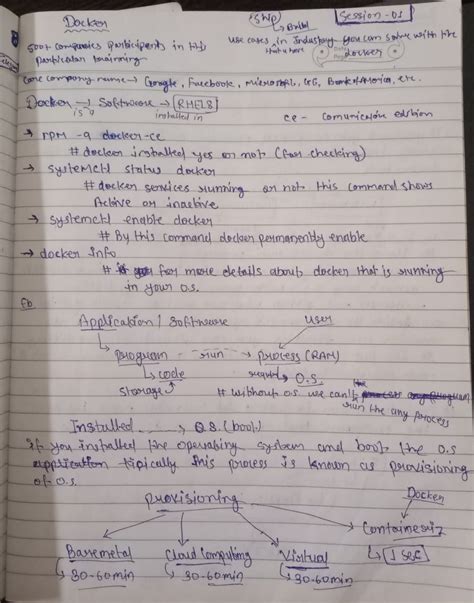 Docker
Session - 01
500+ companies participents in this
particular learning
use cases in Industry you can solve with the
docker
core company name → Google, Facebook, Microsoft, Bank of America, etc.
Docker → Software → RHEL8
is a
installed in
ce - comunication edition
→ rpm -q docker-ce
# docker installed yes or not (for checking)
→ systemctl status docker
# docker services running or not this command shows
Active or inactive
→ systemctl enable docker
# By this command docker permanently enable
→ docker info
# for more details about docker that is running
in your o.s.
Application / software
user
program - - run - → process (RAM)
code
storage
O.S.
# without o.s. we can't
run the any process
Installed O.S. (boot)
if you installed the operating system and boot the o.s
tipically this process is known as provisioning
of o.s.
Provisioning
Docker
Containeriz
1 sec
Baremetal
Cloud Computing
Virtual
30-60 min
30-60 min
30-60 min